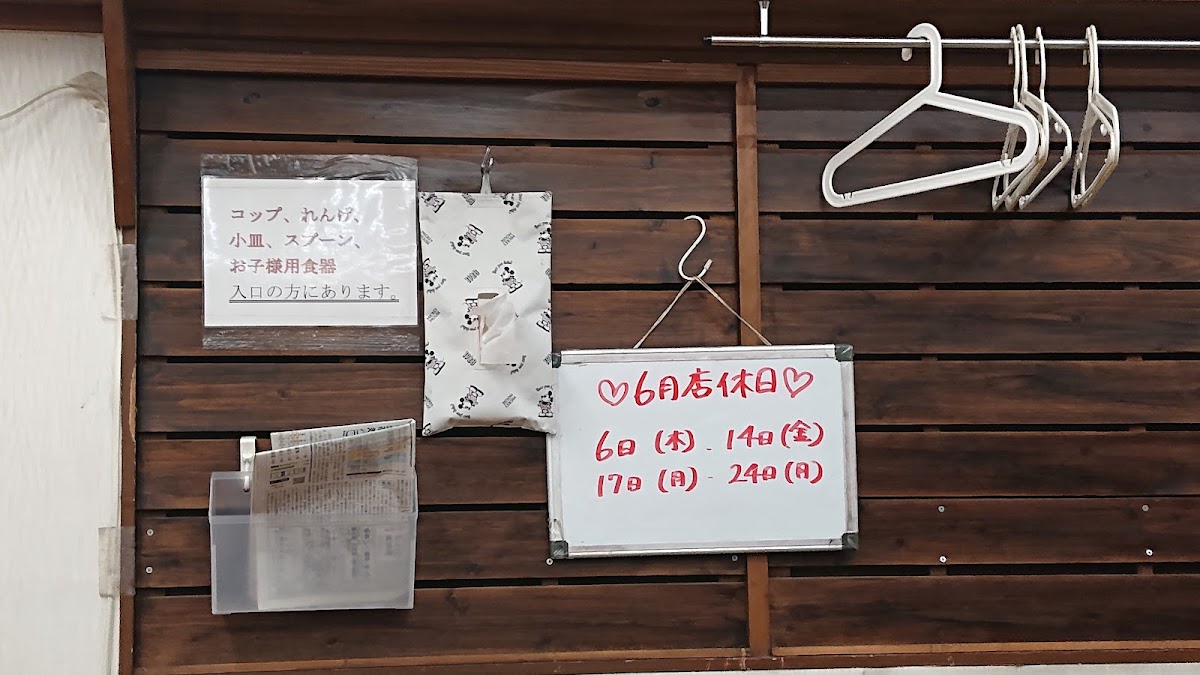 コップ、れんげ、
小皿、スプーン、
お子様用食器
入口の方にあります。
♡6月店休日♡
6日(木)、14日(金)
17日(月)-24日(月)